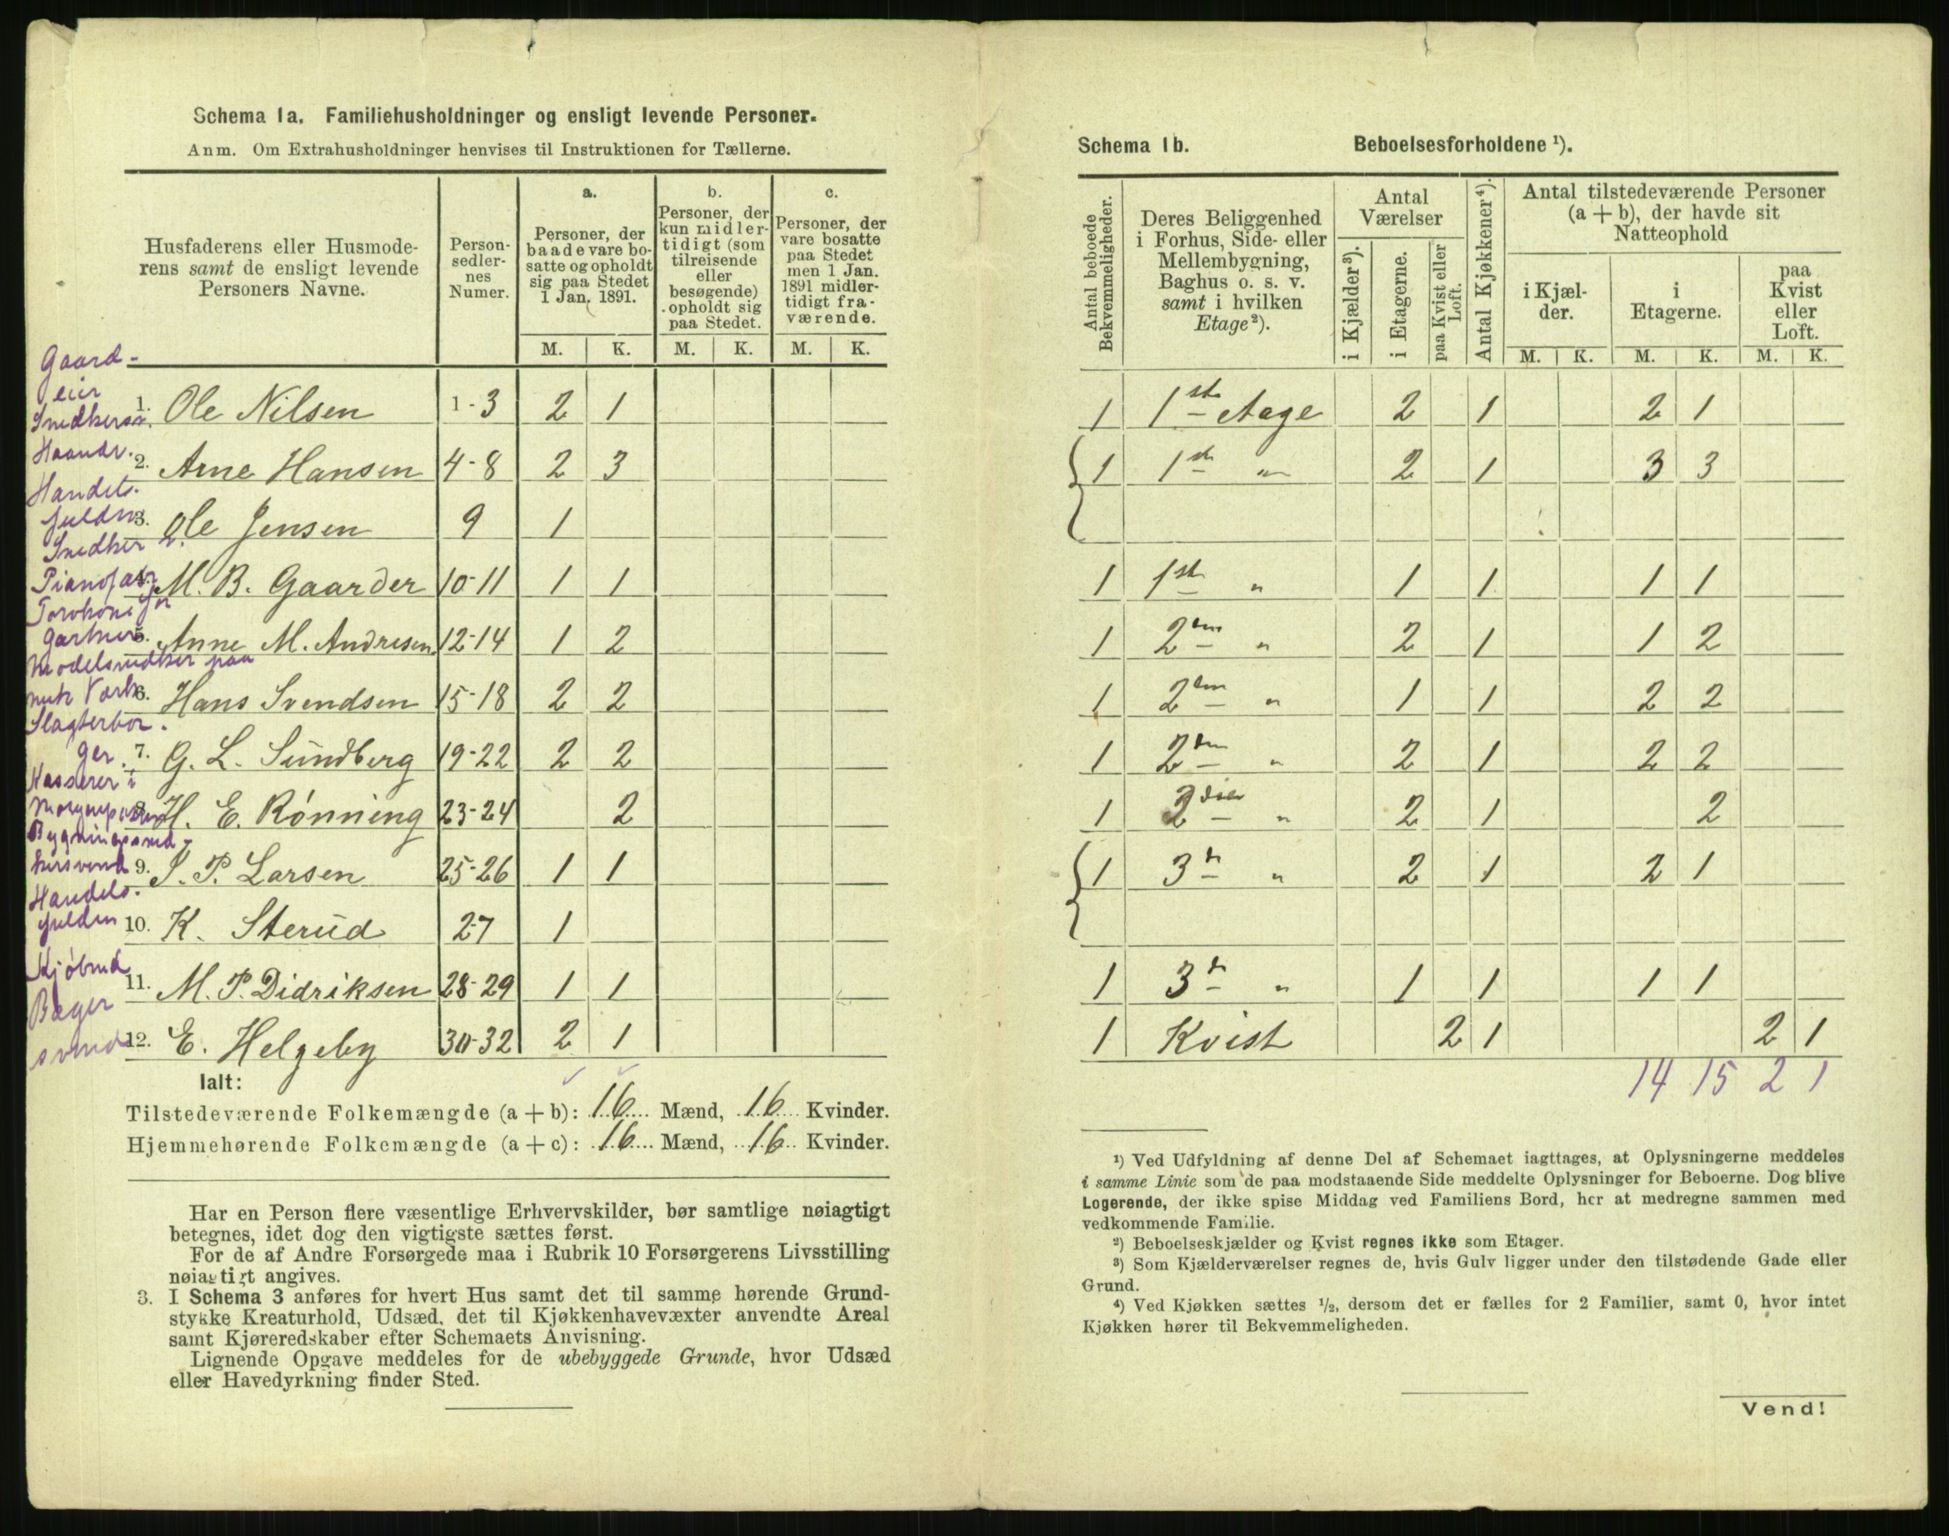 Schema 1a. Familiehusholdninger og ensligt levende Personer.
Anm. Om Extrahusholdninger henvises til Instruktionen for Tællerne.
Husfaderens eller Husmode-
rens samt de ensligt levende
Personers Navne.
Person-
sedler-
nes
Numer.
a.
Personer, der
baade vare bo-
satte og opholdt
sig paa Stedet
1 Jan. 1891.
b.
Personer, der
kun midler-
tidigt (som
tilreisende
eller
besøgende)
opholdt sig
paa Stedet.
c.
Personer, der
vare bosatte
paa Stedet
men 1 Jan.
1891 midler-
tidigt fra-
værende.
M. K. M. K. M. K.
Gaard-
eier
Snedkersv.
1. Ole Nilsen 1-3 2 1
Haandv.
2. Arne Hansen 4-8 2 3
Handels.
fuldm
3. Ole Jensen 9 1
Snedker
Pianofabr
4. M. B. Gaarder 10-11 1 1
Gartner
5. Anne M. Andresen 12-14 1 2
Modelsnedker paa
mek Værk
6. Hans Svendsen 15-18 2 2
Slagterbor-
ger
7. G. L. Sundberg 19-22 2 2
Kasserer i
Morgenposten
8. H. E. Rønning 23-24 2
Bygningssned-
kersvend
9. S. P. Larsen 25-26 1 1
Handels.
fuldm
10. K. Sterud 27 1
Kjøbmd
11. M. P. Didriksen 28-29 1 1
Bager
svend
12. E. Helgeby 30-32 2 1
Ialt:
Tilstedeværende Folkemængde (a + b): 16 Mænd, 16 Kvinder.
Hjemmehørende Folkemængde (a + c): 16 Mænd, 16 Kvinder.
Har en Person flere væsentlige Erhvervskilder, bør samtlige nøiagtigt
betegnes, idet dog den vigtigste sættes først.
For de af Andre Forsørgede maa i Rubrik 10 Forsørgerens Livsstilling
nøiagtigt angives.
3. I Schema 3 anføres for hvert Hus samt det til samme hørende Grund-
stykke Kreaturhold, Udsæd, det til Kjøkkenhavevæxter anvendte Areal
samt Kjøreredskaber efter Schemaets Anvisning.
Lignende Opgave meddeles for de ubebyggede Grunde, hvor Udsæd
eller Havedyrkning finder Sted.
Schema 1b. Beboelsesforholdene ¹).
Antal beboede
Bekvemmeligheder.
Deres Beliggenhed
i Forhus, Side- eller
Mellembygning,
Baghus o. s. v.
samt i hvilken
Etage²).
Antal
Værelser
i Kjælder³).
i Etagerne.
paa Kvist eller
Loft.
Antal Kjøkkener⁴).
Antal tilstedeværende Personer
(a + b), der havde sit
Natteophold
i Kjæl-
der.
i
Etagerne.
paa
Kvist
eller
Loft.
M. K. M. K. M. K.
1 1ste Etage 2 1 2 1
1 1ste " 2 1 3 3
1 1ste " 1 1 1 1
1 2den " 2 1 1 2
1 2den " 1 1 2 2
1 2den " 2 1 2 2
1 3die " 2 1 2
1 3de " 2 1 2 1
1 3de " 1 1 1 1
1 Kvist 2 1 2 1
14 15 2 1
¹) Ved Udfyldning af denne Del af Schemaet iagttages, at Oplysningerne meddeles
i samme Linie som de paa modstaaende Side meddelte Oplysninger for Beboerne. Dog blive
Logerende, der ikke spise Middag ved Familiens Bord, her at medregne sammen med
vedkommende Familie.
²) Beboelseskjælder og Kvist regnes ikke som Etager.
³) Som Kjælderværelser regnes de, hvis Gulv ligger under den tilstødende Gade eller
Grund.
⁴) Ved Kjøkken sættes ½, dersom det er fælles for 2 Familier, samt 0, hvor intet
Kjøkken hører til Bekvemmeligheden.
Vend!